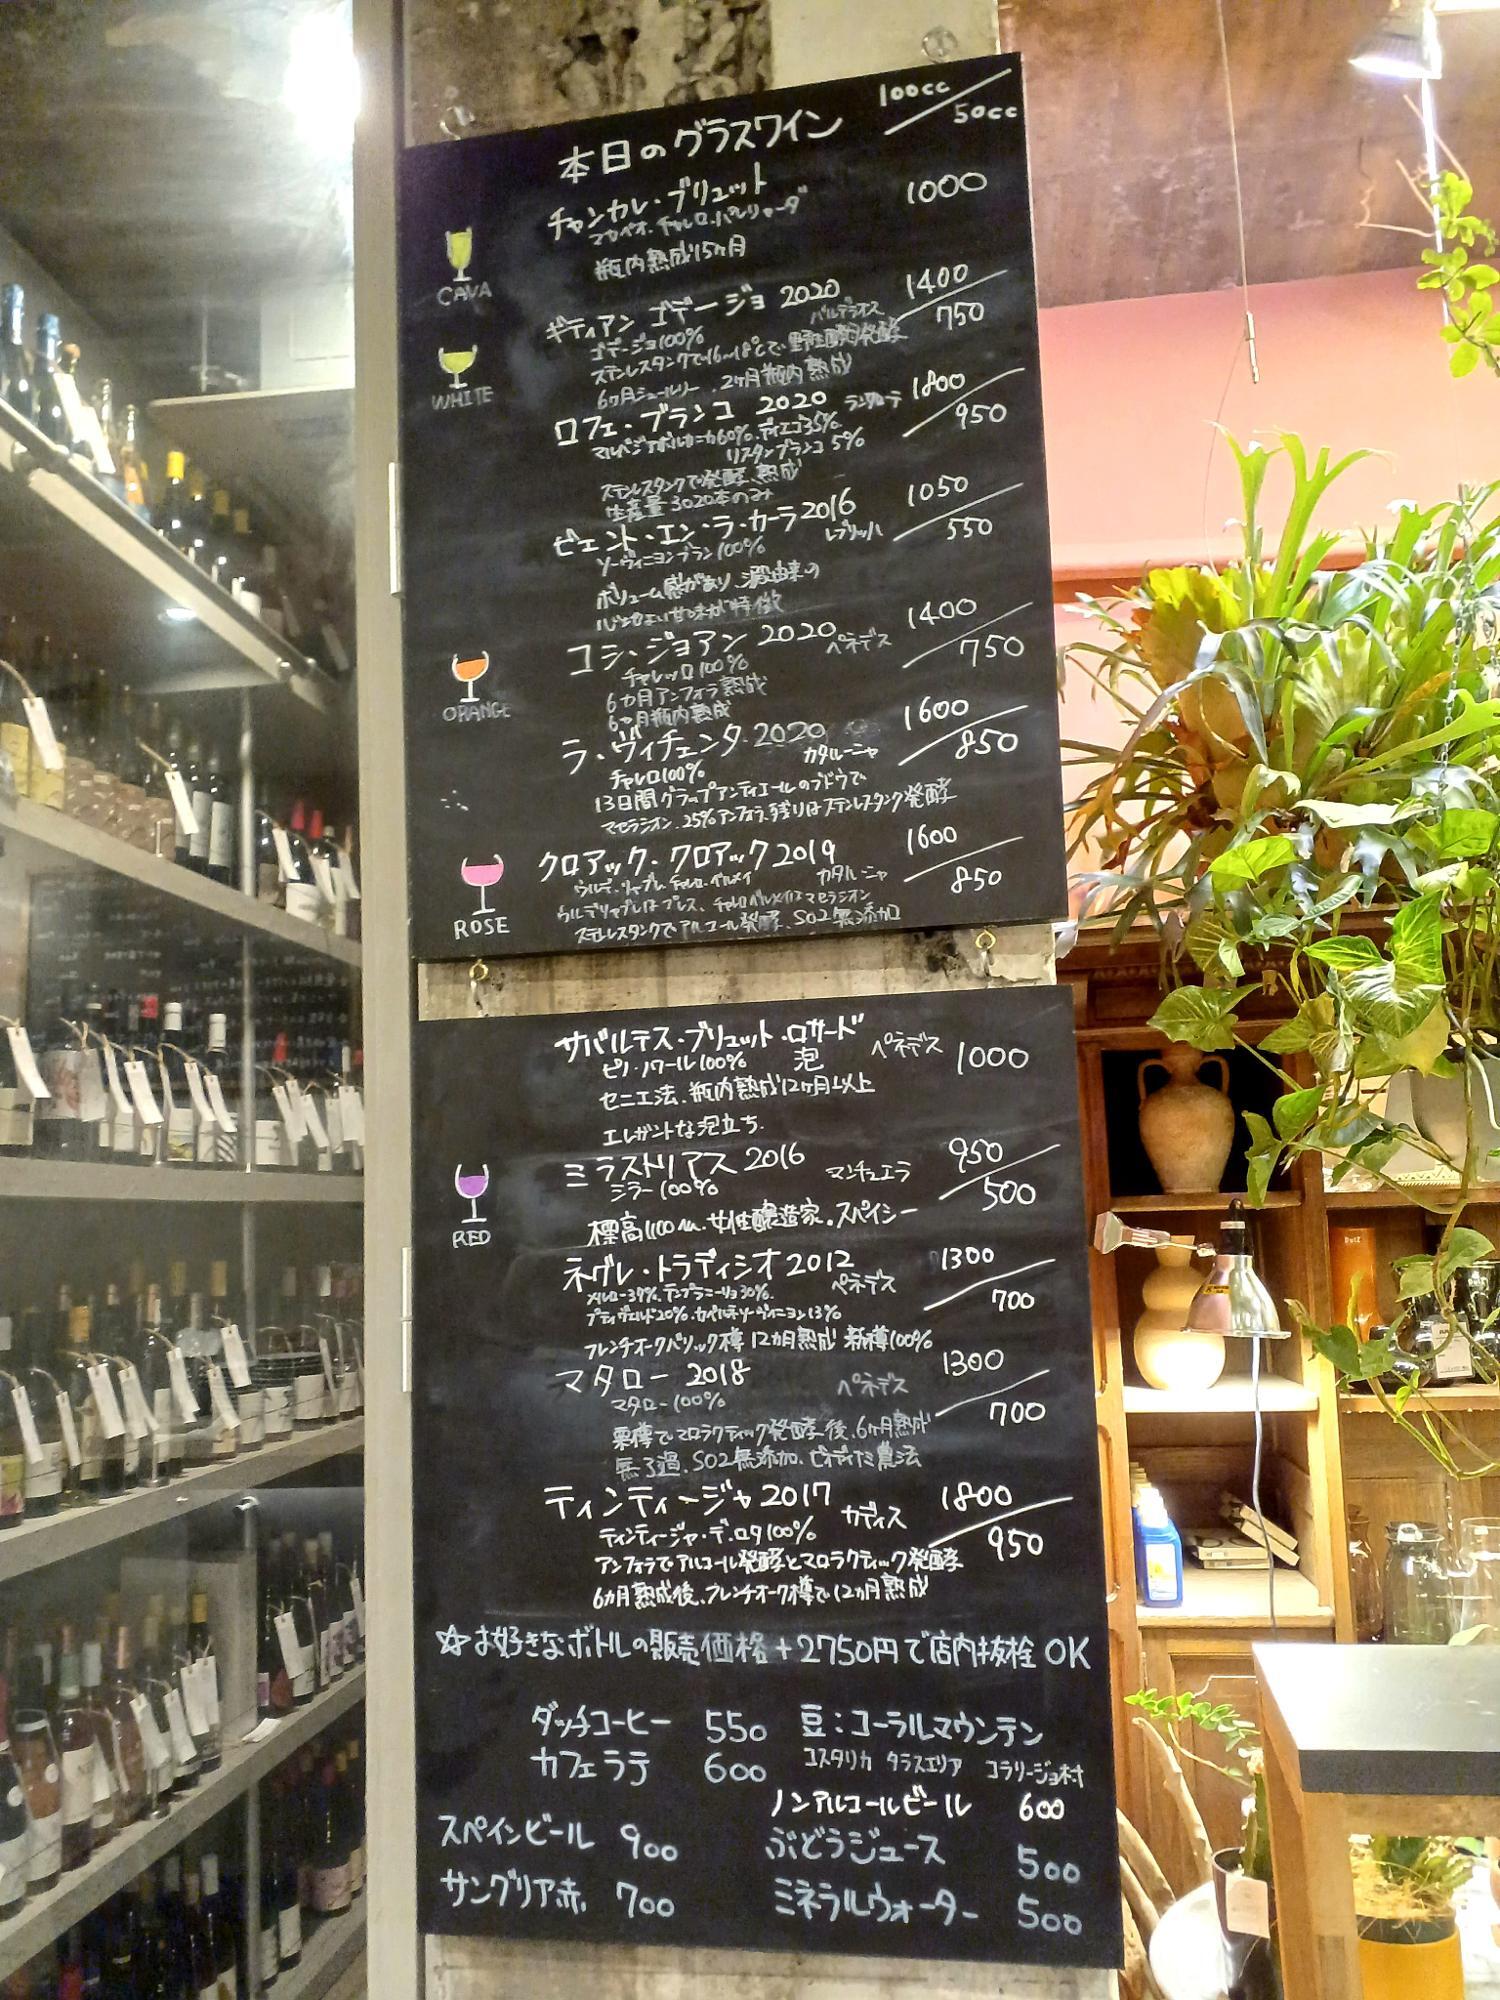 本日のグラスワイン
100cc
50cc
チャンカレ・ブリュット
マカベオ、チャレロ、パレリャーダ
1000
瓶内熟成15ヶ月
CAVA
ギティアン ゴデージョ 2020
バルデオラス
1400
750
ゴデージョ100%
ステンレスタンクで16〜18℃で野生酵母発酵
6ヶ月シュールリー、2ヶ月瓶内熟成
WHITE
ロフェ・ブランコ 2020
ランサローテ
1800
950
マルベジアボルカニカ60%、ディエゴ35%
リスタンブランコ 5%
ステンレスタンクで発酵、熟成
生産量3020本のみ
ビエント・エン・ラ・カーラ2016
レブリッハ
1050
550
ソーヴィニヨンブラン100%
ボリューム感があり、澱由来の
心地よい甘味が特徴
コシ・ジョアン 2020
ペネデス
1400
750
チャレッロ100%
6カ月アンフォラ熟成
6ヶ月瓶内熟成
ORANGE
ラ・ヴィチェンタ 2020
カタルーニャ
1600
850
チャレロ100%
13日間グラップアンティエールのブドウで
マセラシオン、25%アンフォラ、残りはステンレスタンク発酵
クロアック・クロアック2019
カタルーニャ
1600
850
ROSE
ステンレスタンクでアルコール発酵、SO2無添加
サバルテス・ブリュット・ロサード
泡
ペネデス
1000
ピノ・ノワール100%
セニエ法、瓶内熟成12ヶ月以上
エレガントな泡立ち.
ミラストリアス 2016
マンチュエラ
950
500
シラー100%
標高1100m、女性醸造家。スパイシー
RED
ネグレ・トラディシオ2012
ペネデス
1300
700
メルロー37%、テンプラニーリョ30%、
プティヴェルド20%、カベルネソーヴィニヨン13%
フレンチオークバリック樽 12カ月熟成 新樽100%
マタロー 2018
ペネデス
1300
700
マタロー100%
栗樽でマロラクティック発酵後、6ヶ月熟成
無ろ過、SO2無添加、ビオディナミ農法
ティンティージャ2017
カディス
1800
950
ティンティージャ・デ・ロタ100%
アンフォラでアルコール発酵とマロラクティック発酵
6カ月熟成後、フレンチオーク樽で12ヵ月熟成
☆お好きなボトルの販売価格+2750円で店内抜栓OK
ダッチコーヒー 550
豆：コーラルマウンテン
カフェラテ 600
コスタリカ タラスエリア コラリージョ村
ノンアルコールビール 600
スペインビール 900
ぶどうジュース 500
サングリア赤 700
ミネラルウォーター 500